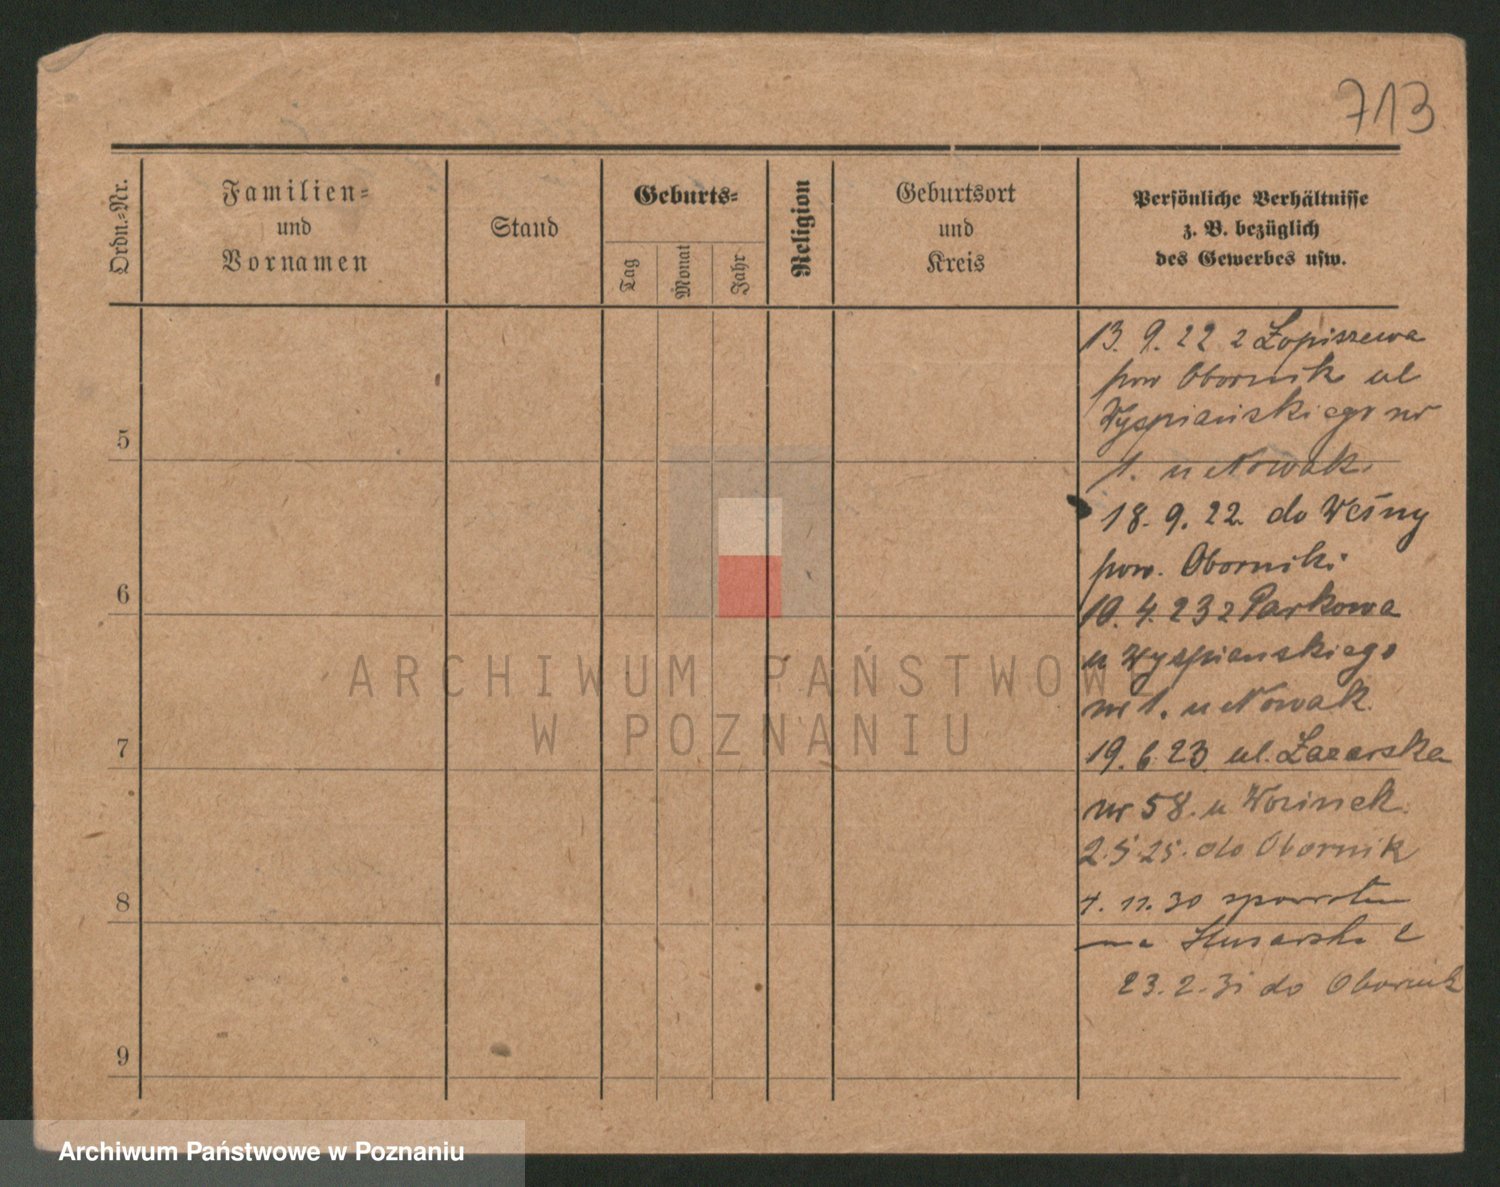 713
Ordn.=Nr.
Familien=
und
Vornamen
Stand
Geburts=
Tag
Monat
Jahr
Religion
Geburtsort
und
Kreis
Persönliche Verhältnisse
z. B. bezüglich
des Gewerbes usw.
5
6
7
8
9
13. 9. 22 z Łopiszewa
pow Obornik ul
Wyspiańskiego nr
1. u Nowak.
18. 9. 22. do
pow. Oborniki
10. 4. 23 z Parkowa
u Wyspianskiego
nr 1. u Nowak.
19. 6. 23. ul. Łazarska
nr 58. u
2. 5. 25. do Obornik
4. 11. 30 spowrotem
na 2
23. 2. 31 do Obornik
ARCHIWUM PAŃSTWOWE
W POZNANIU
Archiwum Państwowe w Poznaniu